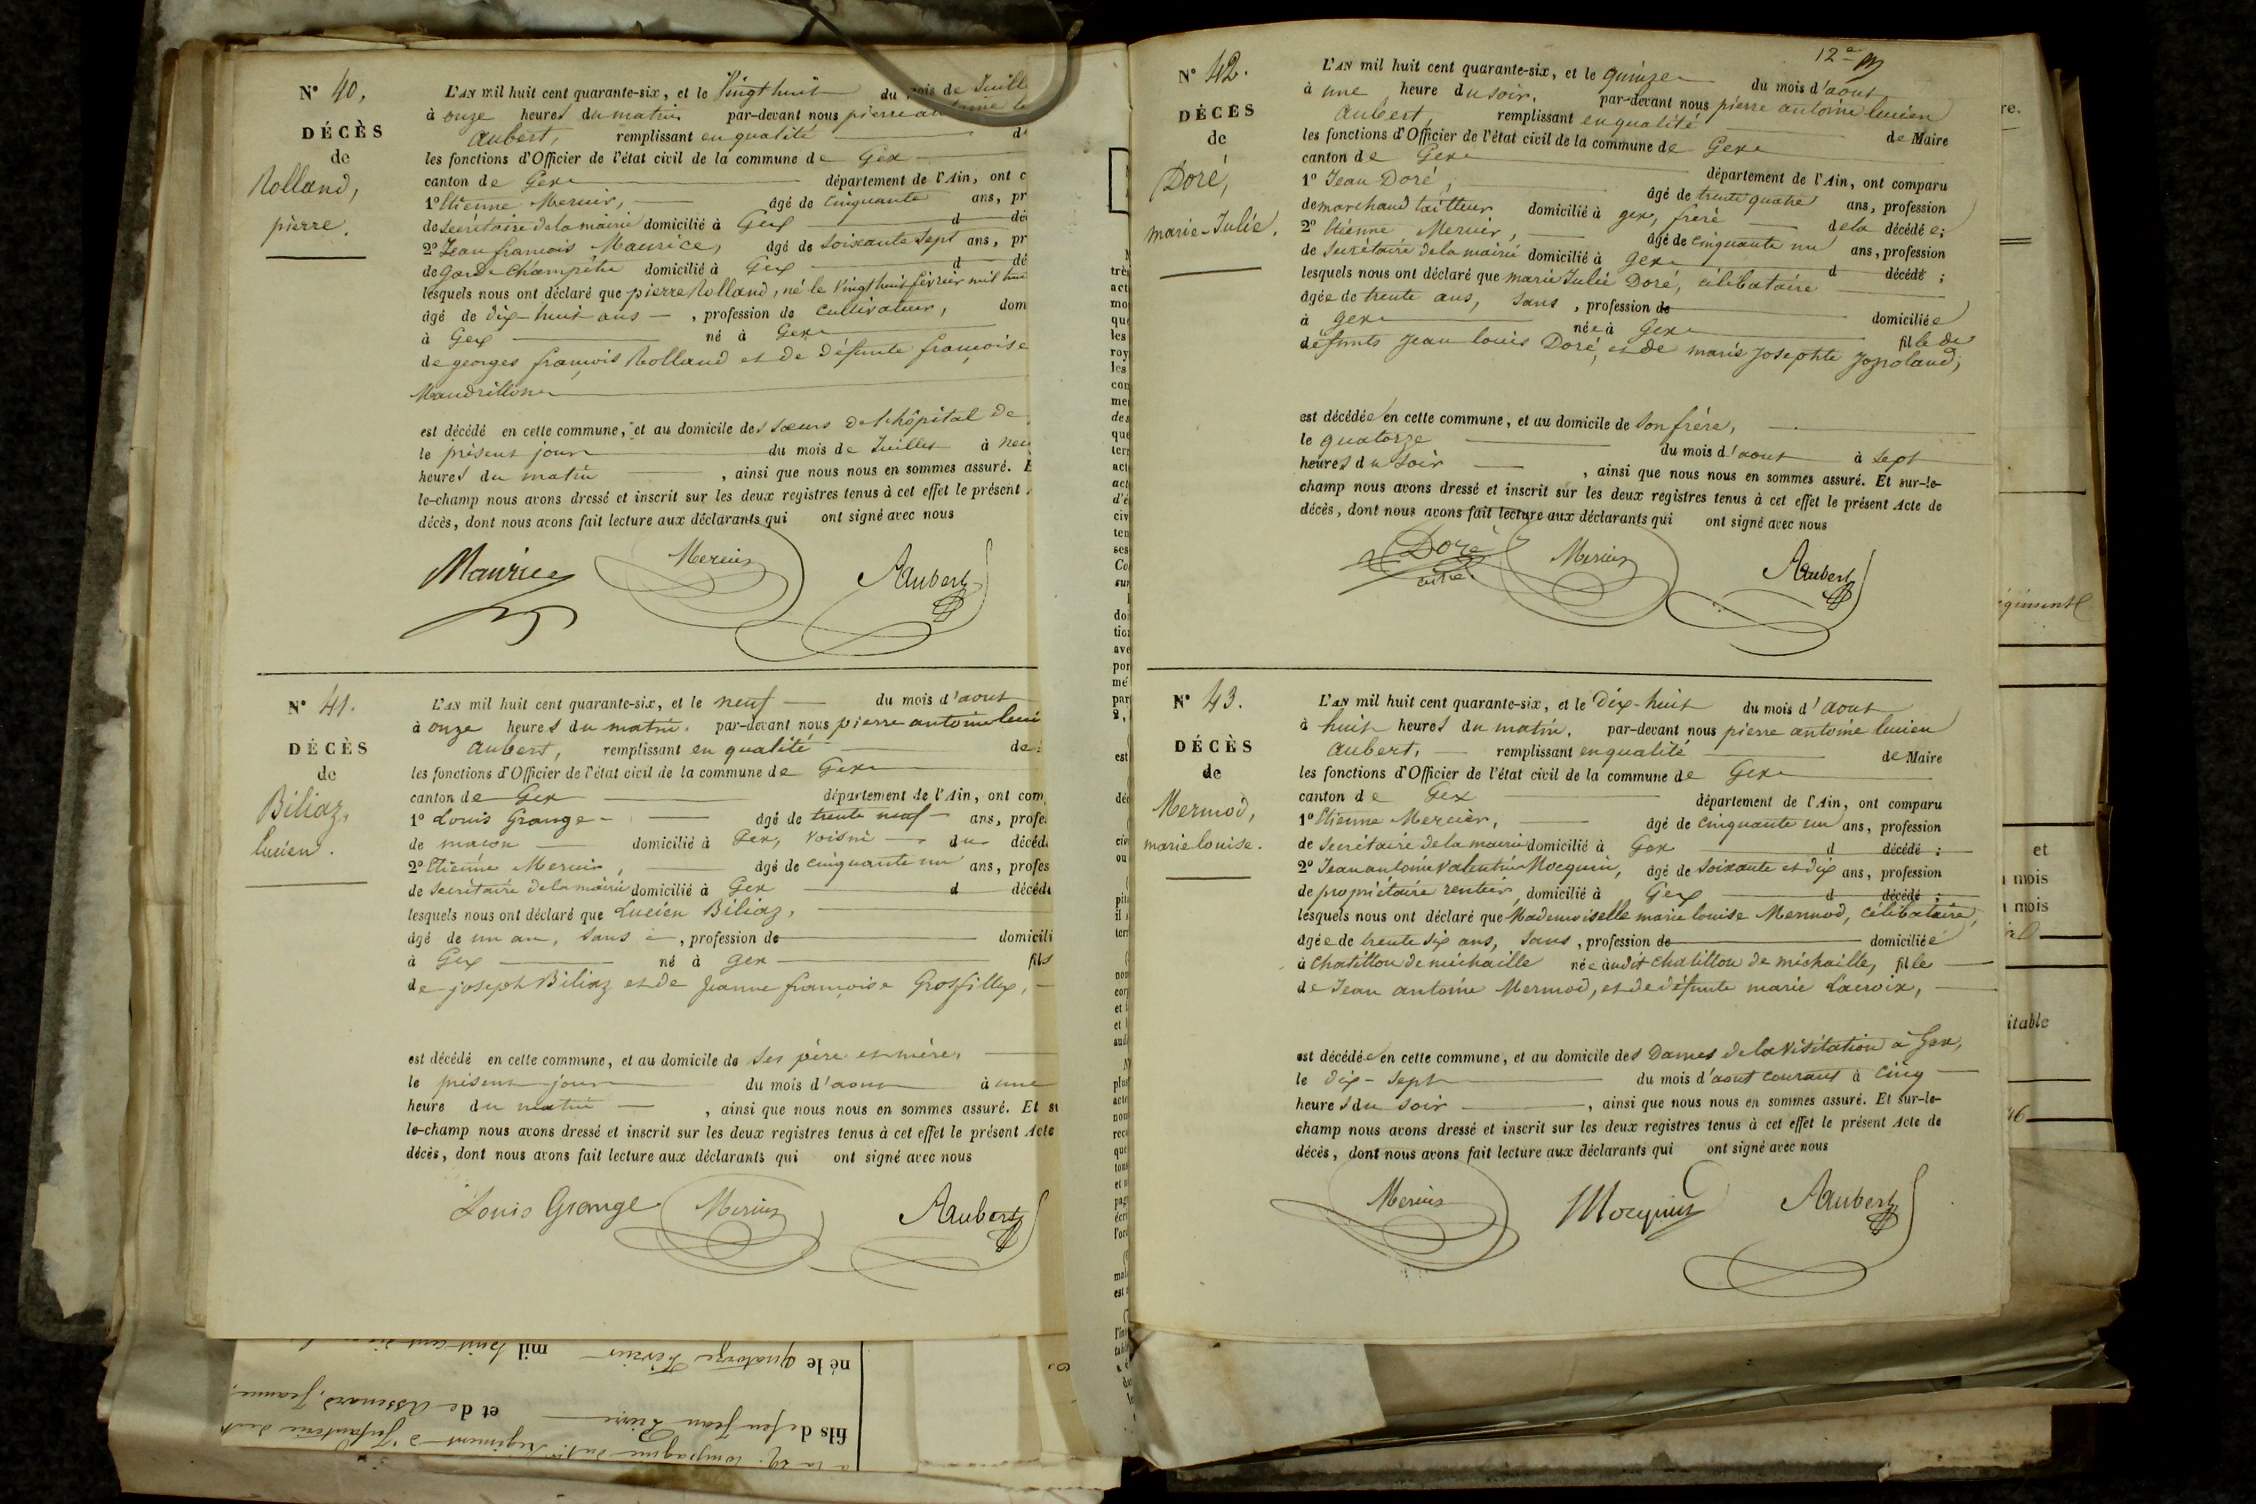 N° 40.
DÉCÈS
de
Rolland,
pierre.
L'AN mil huit cent quarante-six, et le Vingt huit du mois de Juill
à onze heures du matin par-devant nous pierre
Aubert, remplissant en qualité
les fonctions d'Officier de l'état civil de la commune de Gex
canton de Gex département de l'Ain, ont c
1° Etienne Mercier, âgé de cinquante ans, pr
de secrétaire de la mairie domicilié à Gex d dé
2° Jean françois Maurice, âgé de soixante sept ans, pr
de garde champêtre domicilié à Gex d dé
lesquels nous ont déclaré que pierre Rolland, né le vingt huit février mil hui
âgé de dix-huit ans, profession de cultivateur, dom
à Gex né à Gex
de georges françois Rolland et de défunte françoise
Mandrillon
est décédé en cette commune, et au domicile des sœurs de l'hôpital de
le présent jour du mois de Juillet à neu
heures du matin, ainsi que nous nous en sommes assuré. E
le-champ nous avons dressé et inscrit sur les deux registres tenus à cet effet le présent
décès, dont nous avons fait lecture aux déclarants qui ont signé avec nous
Maurice Mercier Aubert
N° 41.
DÉCÈS
de
Biliaz,
lucien.
L'AN mil huit cent quarante-six, et le neuf du mois d'aout
à onze heures du matin. par-devant nous pierre antoine luci
Aubert, remplissant en qualité de
les fonctions d'Officier de l'état civil de la commune de Gex
canton de Gex département de l'Ain, ont com
1° Louis Grange âgé de trente neuf ans, profe
de maçon domicilié à Gex, voisin du décéd
2° Etienne Mercier, âgé de cinquante un ans, profes
de secrétaire de la mairie domicilié à Gex d décéd
lesquels nous ont déclaré que Lucien Biliaz,
âgé de un an, sans, profession de domicili
à Gex né à Gex fils
de joseph Biliaz et de Jeanne françoise Grosfillex,
est décédé en cette commune, et au domicile de ses père et mère,
le présent jour du mois d'aout à une
heure du matin, ainsi que nous nous en sommes assuré. Et su
le-champ nous avons dressé et inscrit sur les deux registres tenus à cet effet le présent Acte
décès, dont nous avons fait lecture aux déclarants qui ont signé avec nous
Louis Grange Mercier Aubert
12e
N° 42.
DÉCÈS
de
Doré,
marie-Julie.
L'AN mil huit cent quarante-six, et le quinze du mois d'aout
à une heure du soir. par-devant nous pierre antoine lucien
Aubert, remplissant en qualité de Maire
les fonctions d'Officier de l'état civil de la commune de Gex
canton de Gex département de l'Ain, ont comparu
1° Jean Doré, âgé de trente quatre ans, profession
de marchand tailleur domicilié à gex, frère de la décédée;
2° Etienne Mercier, âgé de cinquante un ans, profession
de secrétaire de la mairie domicilié à gex d décédé;
lesquels nous ont déclaré que marie Julie Doré, célibataire
âgée de trente ans, sans, profession de domiciliée
à gex née à Gex fille de
défunts Jean louis Doré, et de marie Josephte
est décédée en cette commune, et au domicile de son frère,
le quatorze du mois d'aout à sept
heures du soir, ainsi que nous nous en sommes assuré. Et sur-le-
champ nous avons dressé et inscrit sur les deux registres tenus à cet effet le présent Acte de
décès, dont nous avons fait lecture aux déclarants qui ont signé avec nous
Doré Mercier Aubert
N° 43.
DÉCÈS
de
Mermod,
marie louise.
L'AN mil huit cent quarante-six, et le Dix-huit du mois d'aout
à huit heures du matin. par-devant nous pierre antoine lucien
Aubert, remplissant en qualité de Maire
les fonctions d'Officier de l'état civil de la commune de Gex
canton de Gex département de l'Ain, ont comparu
1° Etienne Mercier, âgé de cinquante un ans, profession
de secrétaire de la mairie domicilié à Gex d décédé;
2° Jean antoine Valentin Mocquin, âgé de soixante et dix ans, profession
de propriétaire rentier, domicilié à Gex d décédé;
lesquels nous ont déclaré que Mademoiselle marie louise Mermod, célibataire,
âgée de trente six ans, sans, profession de domiciliée
à Chatillon de michaille née audit chatillon de michaille, fille
de Jean antoine Mermod, et de défunte marie Lacroix,
est décédée en cette commune, et au domicile des Dames de la Visitation à Gex,
le dix-sept du mois d'aout courant à cinq
heures du soir, ainsi que nous nous en sommes assuré. Et sur-le-
champ nous avons dressé et inscrit sur les deux registres tenus à cet effet le présent Acte de
décès, dont nous avons fait lecture aux déclarants qui ont signé avec nous
Mercier Mocquin Aubert
né le quatorze février mil huit cent
fils de feu Jean et de Jeanne,